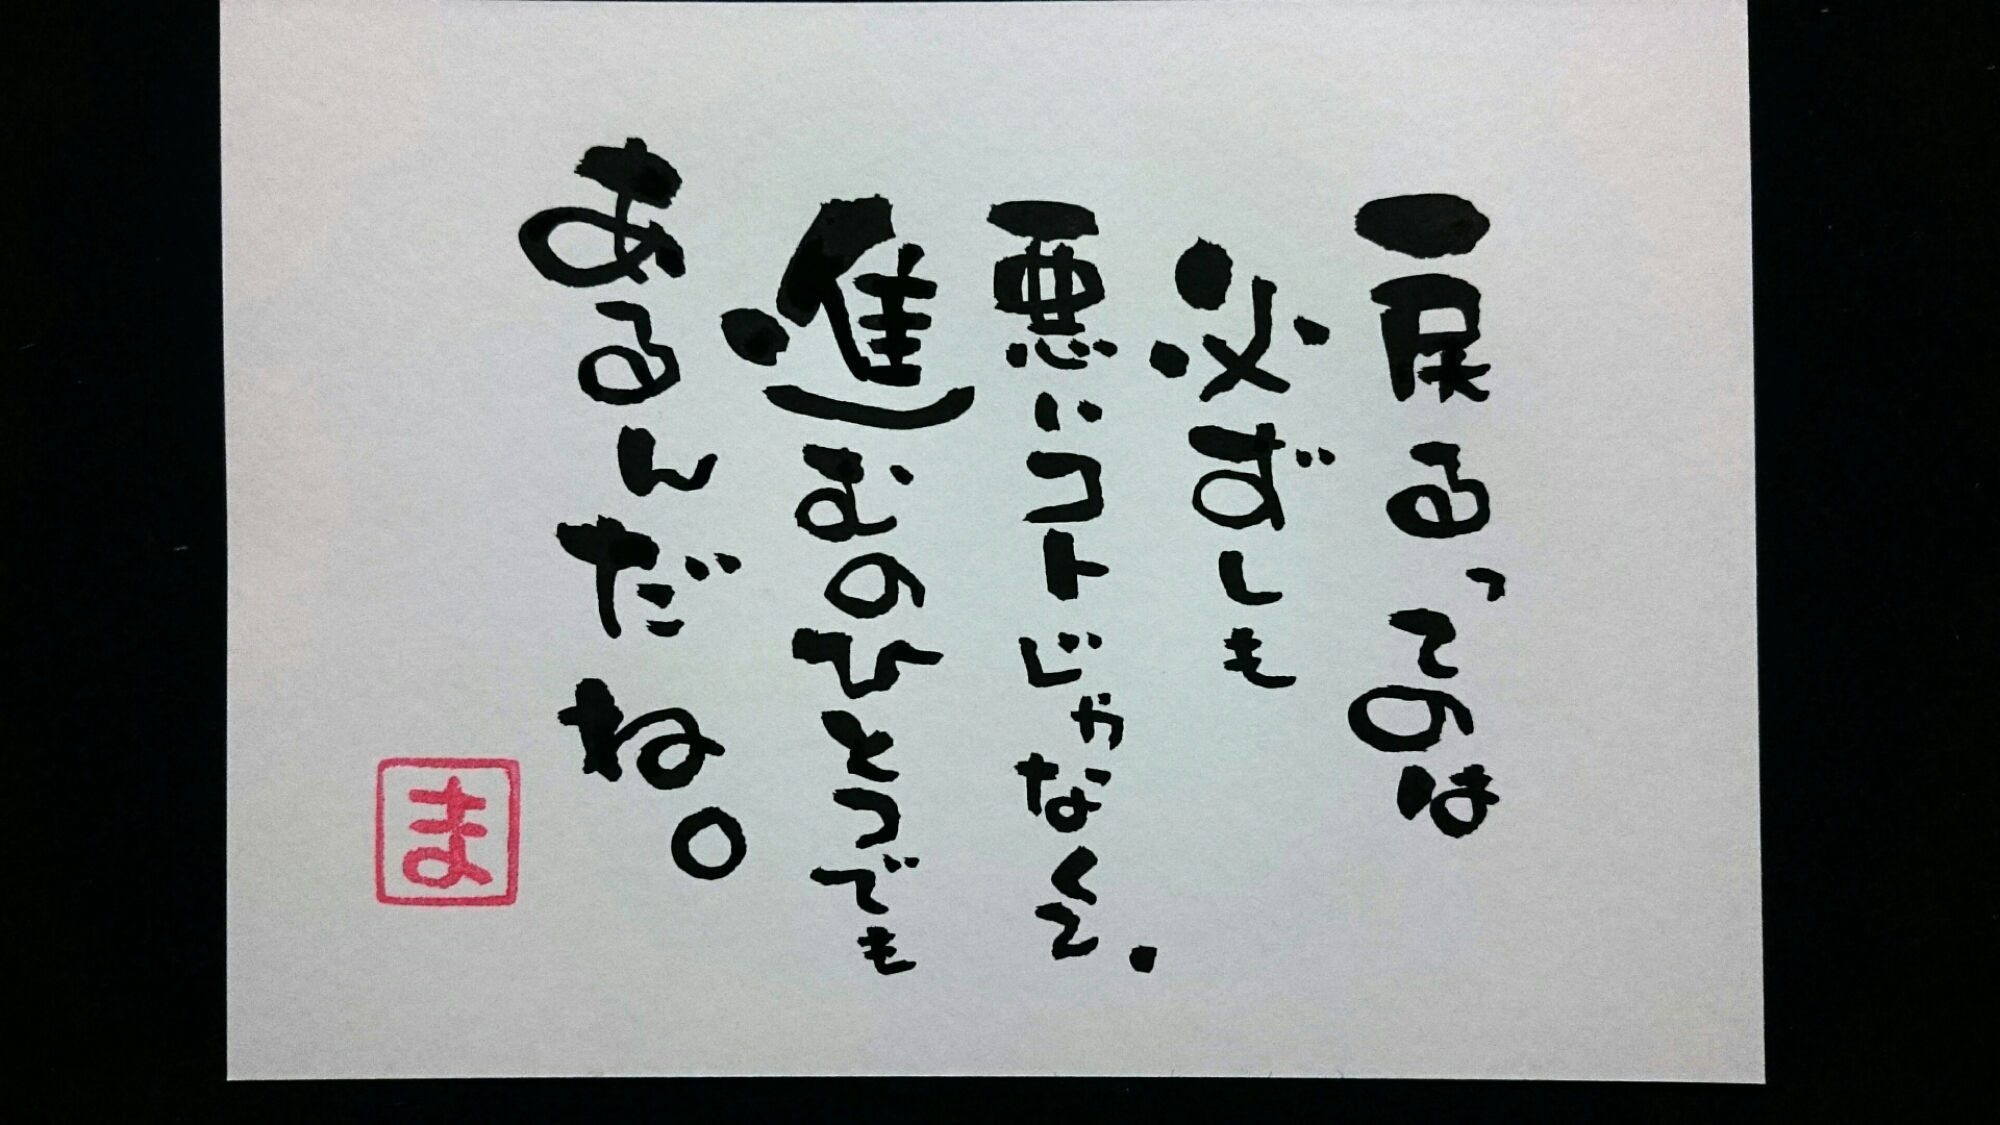 戻るってのは
必ずしも
悪いコトじゃなくて.
進むのひとつでも
あるんだね。
ま